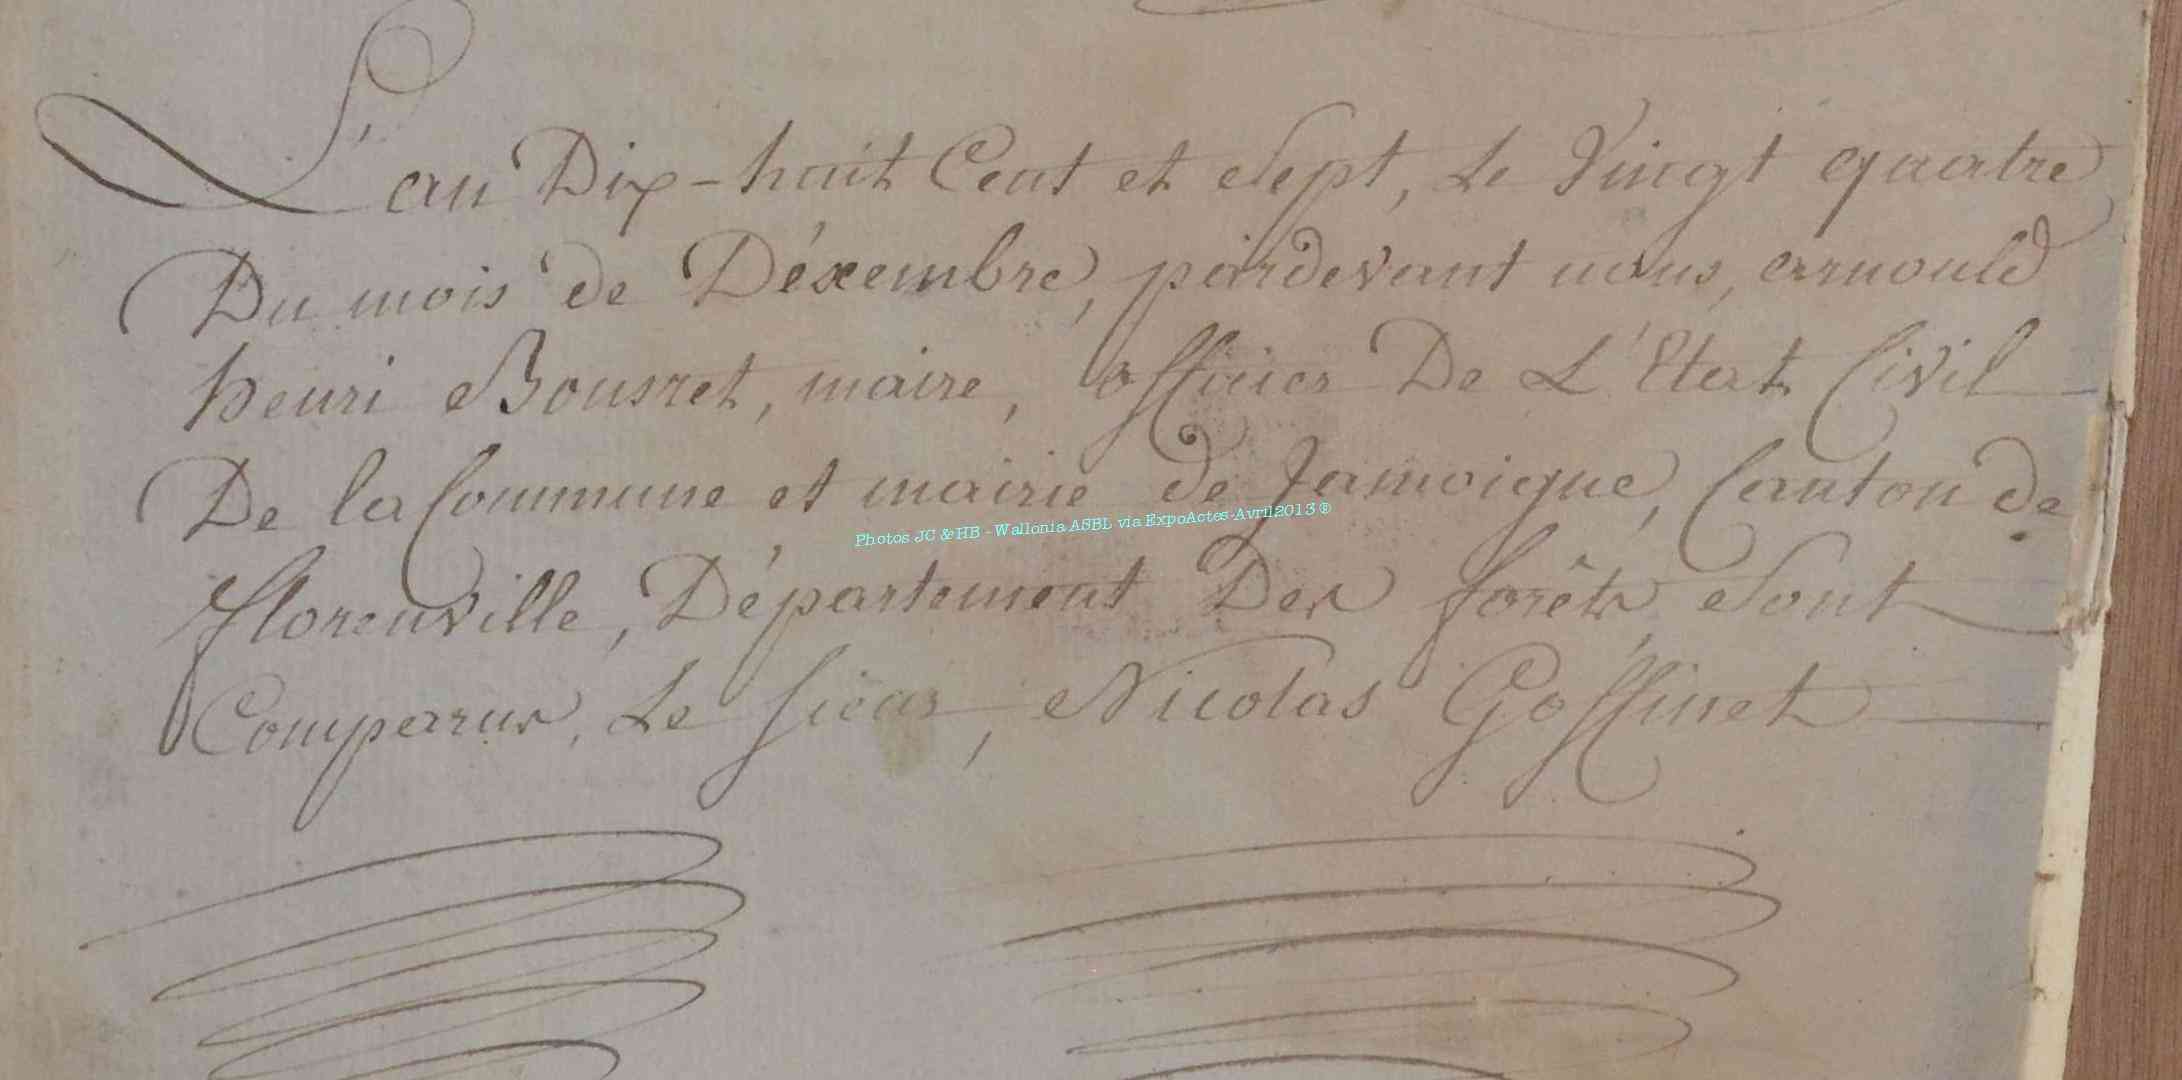 L'an Dix-huit Cent et Sept, Le Vingt quatre
Du mois de Déxembre, pardevant nous, arnould
henri Bousret, maire, officier De L'Etat Civil
De la Commune et mairie de Jamoigne, Canton de
Photos JC & HB - Wallonia ASBL via ExpoActes-Avril2013 ®
florenville, Département Des forêts, Sont
Comparus, Le sieur, Nicolas Goffinet